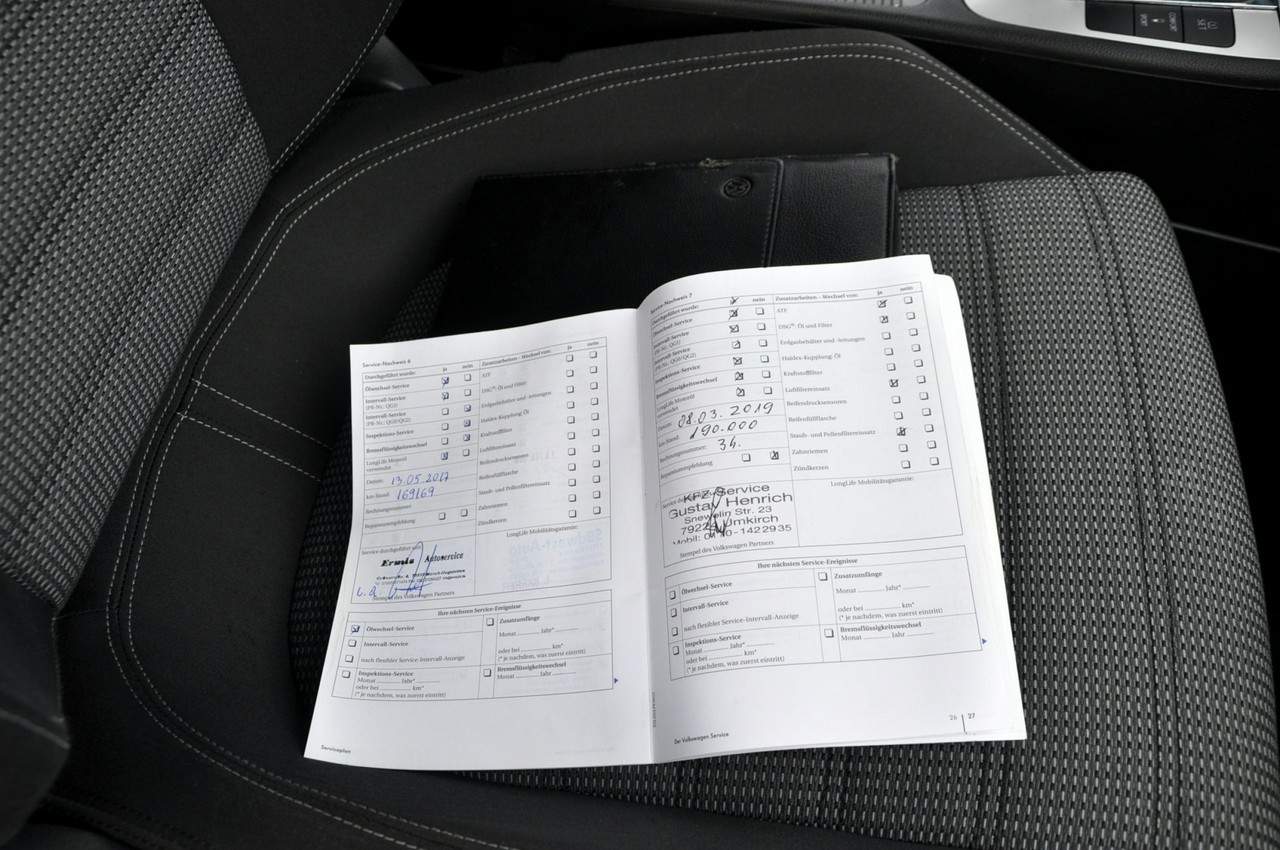 SET
Service-Nachweis 6
Durchgeführt wurde: ja nein
Ölwechsel-Service
Intervall-Service
(PR-Nr.: QG1)
Intervall-Service
(PR-Nr.: QG0/QG2)
Inspektions-Service
Bremsflüssigkeitswechsel
LongLife Motoröl
verwendet
Datum: 13.05.2017
km-Stand: 169169
Rechnungsnummer:
Reparaturempfehlung
Zusatzarbeiten - Wechsel von: ja nein
ATF
DSG®: Öl und Filter
Erdgasbehälter und -leitungen
Haldex-Kupplung: Öl
Kraftstofffilter
Luftfiltereinsatz
Reifendrucksensoren
Reifenfüllflasche
Staub- und Pollenfiltereinsatz
Zahnriemen
Zündkerzen
Service durchgeführt von:
Ermis Autoservice
Stempel des Volkswagen Partners
LongLife Mobilitätsgarantie:
Ihre nächsten Service-Ereignisse
Ölwechsel-Service
Intervall-Service
nach flexibler Service-Intervall-Anzeige
Inspektions-Service
Monat Jahr*
oder bei km*
(* je nachdem, was zuerst eintritt)
Zusatzumfänge
Monat Jahr*
oder bei km*
(* je nachdem, was zuerst eintritt)
Bremsflüssigkeitswechsel
Monat Jahr
Serviceplan
Service-Nachweis 7
Durchgeführt wurde: nein
Ölwechsel-Service
Intervall-Service
(PR-Nr.: QG1)
Intervall-Service
(PR-Nr.: QG0/QG2)
Inspektions-Service
Bremsflüssigkeitswechsel
LongLife Motoröl
verwendet
Datum: 08.03.2019
km-Stand: 190.000
Rechnungsnummer: 34.
Reparaturempfehlung
Zusatzarbeiten - Wechsel von: ja nein
ATF
DSG®: Öl und Filter
Erdgasbehälter und -leitungen
Haldex-Kupplung: Öl
Kraftstofffilter
Luftfiltereinsatz
Reifendrucksensoren
Reifenfüllflasche
Staub- und Pollenfiltereinsatz
Zahnriemen
Zündkerzen
KFZ-Service
Gustav Henrich
Snewelin Str. 23
79224 Umkirch
Mobil: 0170-1422935
Stempel des Volkswagen Partners
LongLife Mobilitätsgarantie:
Ihre nächsten Service-Ereignisse
Ölwechsel-Service
Intervall-Service
nach flexibler Service-Intervall-Anzeige
Inspektions-Service
Monat Jahr*
oder bei km*
(* je nachdem, was zuerst eintritt)
Zusatzumfänge
Monat Jahr*
oder bei km*
(* je nachdem, was zuerst eintritt)
Bremsflüssigkeitswechsel
Monat Jahr
Der Volkswagen Service
26 27